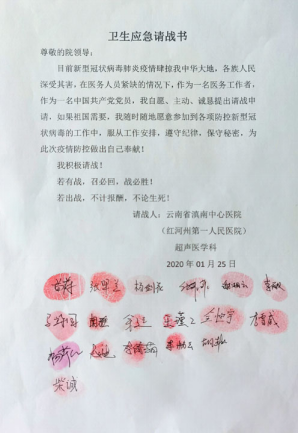 卫生应急请战书
尊敬的院领导：
目前新型冠状病毒肺炎疫情肆掠我中华大地，各族人民
深受其害，在医务人员紧缺的情况下，作为一名医务工作者，
作为一名中国共产党党员，我自愿、主动、诚恳提出请战申
请，如果祖国需要，我随时随地愿意参加到各项防控新型冠
状病毒的工作中，服从工作安排，遵守纪律，保守秘密，为
此次疫情防控做出自己奉献！
我积极请战！
若有战，召必回，战必胜！
若出战，不计报酬，不论生死！
请战人：云南省滇南中心医院
（红河州第一人民医院）
超声医学科
2020 年 01 月 25 日